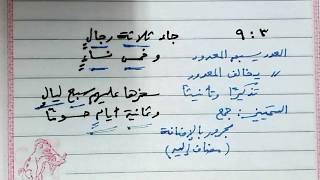 ٩:٣ جاء ثلاثة رجالٍ
العدد يسبق المعدود و خمس نساءٍ
〃 يخالف المعدود
تذكيرًا وتأنيثًا سخرها عليهم سبع ليالٍ
التمييز: جمع وثمانية أيامٍ حسومًا
مجرور بالإضافة
(مضاف إليه)